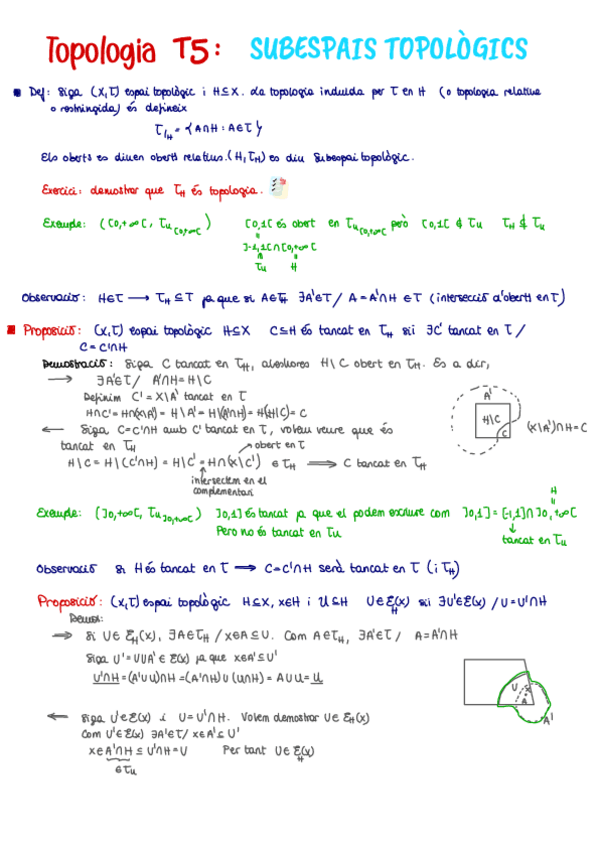 Topologia T5: SUBESPAIS TOPOLÒGICS
Def: Siga (X,τ) espai topològic i H⊆X. La topologia induïda per τ en H (o topologia relativa
o restringida) és defineix
τ|H = {A∩H : A∈τ}
Els oberts es diuen oberts relatius. (H,τH) es diu subespai topològic.
Exercici: demostrar que τH és topologia.
Exemple: ([0,+∞[, τu[0,+∞[) [0,1[ és obert en τu[0,+∞[ però [0,1[ ∉ τu τH ⊄ τu
]-1,1[∩[0,+∞[
τu H
Observació: H∈τ → τH ⊆ τ ja que si A∈τH ∃A'∈τ / A=A'∩H ∈ τ (intersecció d'oberts en τ)
Proposició: (X,τ) espai topològic H⊆X C⊆H és tancat en τH sii ∃C' tancat en τ /
C = C'∩H
Demostració: Siga C tancat en τH, aleshores H\C obert en τH. Es a dir,
→ ∃A'∈τ / A'∩H = H\C
Definim C' = X\A' tancat en τ
H∩C' = H∩(X\A') = H\A' = H\(A'∩H) = H\(H\C) = C
← Siga C=C'∩H amb C' tancat en τ, volem veure que és
tancat en τH
obert en τ
H\C = H\(C'∩H) = H\C' = H∩(X\C') ∈ τH ⟹ C tancat en τH
intersectem en el
complementari
A'
H\C
C
(X\A')∩H=C
Exemple: (]0,+∞[, τu]0,+∞[) ]0,1] és tancat ja que el podem escriure com ]0,1] = [-1,1]∩]0,+∞[
H
Pero no és tancat en τu
tancat en τu
Observació Si H és tancat en τ ⟹ C=C'∩H serà tancat en τ (i τH)
Proposició: (X,τ) espai topològic H⊆X, x∈H i U⊆H U∈ℰH(x) sii ∃U'∈ℰ(x) / U=U'∩H
Demos:
⟹ Si U∈ℰH(x), ∃A∈τH / x∈A⊆U. Com A∈τH, ∃A'∈τ / A=A'∩H
Siga U'=U∪A' ∈ ℰ(x) ja que x∈A'⊆U'
U'∩H=(A'∪U)∩H=(A'∩H)∪(U∩H) = A∪U = U
U
x
A
A'
← Siga U'∈ℰ(x) i U=U'∩H. Volem demostrar U∈ℰH(x)
Com U'∈ℰ(x) ∃A'∈τ / x∈A'⊆U'
x∈A'∩H ⊆ U'∩H=U Per tant U∈ℰH(x)
∈τu